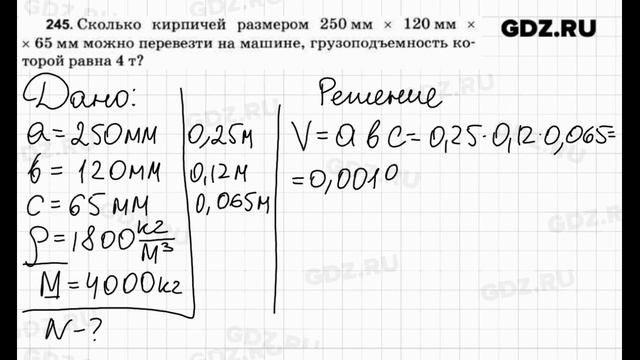 245. Сколько кирпичей размером 250 мм × 120 мм ×
× 65 мм можно перевезти на машине, грузоподъемность ко-
торой равна 4 т?
GDZ.RU
Дано:
a = 250мм 0,25м
в = 120мм 0,12м
c = 65 мм 0,065м
ρ = 1800 кг/м³
M = 4000кг
N - ?
Решение
V = a в c = 0,25 · 0,12 · 0,065 =
= 0,0010
GDZ.RU
GDZ.RU
GDZ.RU